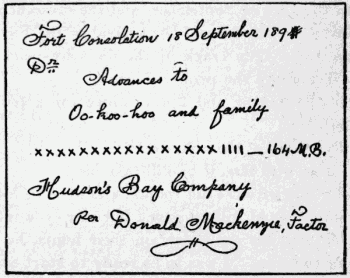 Fort Consolation 18 September 189
Dr
Advances to
Oo-koo-hoo and family
xxxxxxxxxxxxxxxx 1111 — 164 M.B.
Hudson's Bay Company
Per Donald Mackenzie, Factor